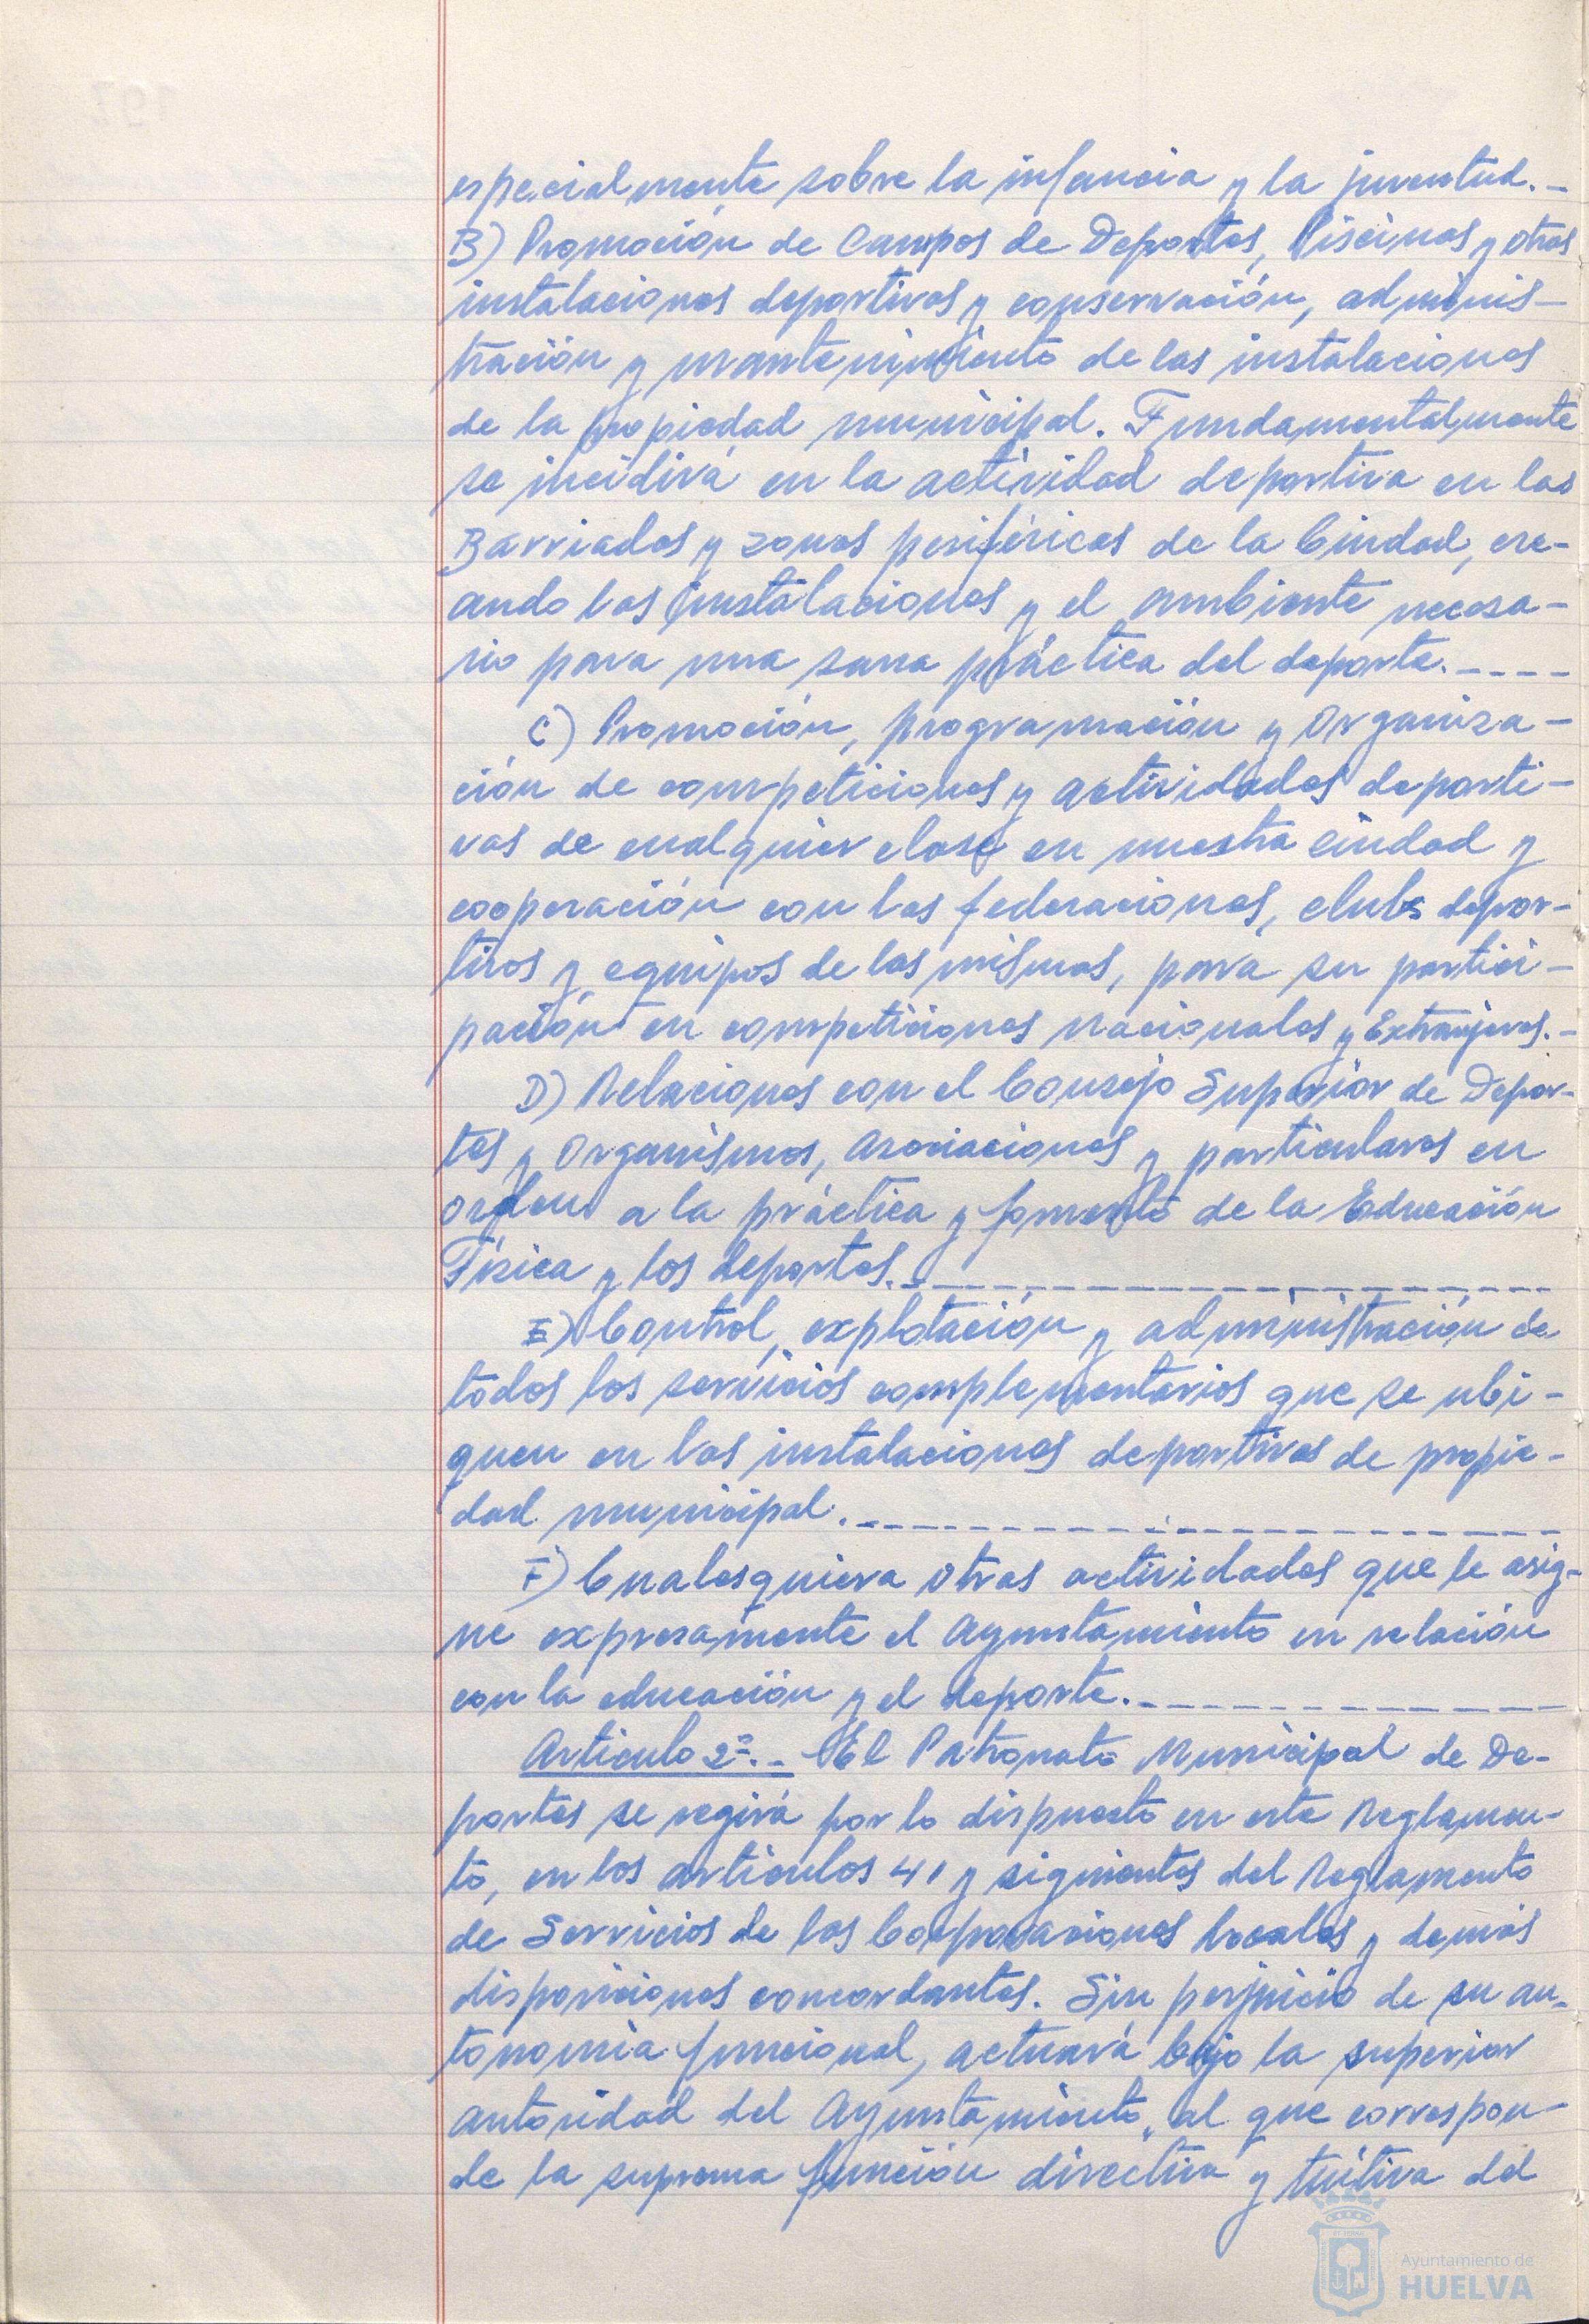 especialmente sobre la infancia y la juventud.-
B) Promoción de Campos de Deportes, Piscinas y otras
instalaciones deportivas y conservación, adminis-
tración y mantenimiento de las instalaciones
de la propiedad municipal. Fundamentalmente
se incidirá en la actividad deportiva en las
Barriadas y zonas periféricas de la Ciudad, cre-
ando las instalaciones y el ambiente necesa-
rio para una sana práctica del deporte.----
C) Promoción, programación y organiza-
ción de competiciones y actividades deporti-
vas de cualquier clase en nuestra ciudad y
cooperación con las federaciones, clubs depor-
tivos y equipos de las mismas, para su partici-
pación en competiciones nacionales y Extranjeras.-
D) Relaciones con el Consejo Superior de Depor-
tes y Organismos, Asociaciones y particulares en
orden a la práctica y fomento de la Educación
Física y los deportes.------------------
E) Control, explotación y administración de
todos los servicios complementarios que se ubi-
quen en las instalaciones deportivas de propie-
dad municipal.--------------------
F) Cualesquiera otras actividades que le asig-
ne expresamente el Ayuntamiento en relación
con la educación y el deporte.-----------
Artículo 2º.- El Patronato Municipal de De-
portes se regirá por lo dispuesto en este Reglamen-
to, en los artículos 41 y siguientes del Reglamento
de Servicios de las Corporaciones locales y demás
disposiciones concordantes. Sin perjuicio de su au-
tonomía funcional, actuará bajo la superior
autoridad del Ayuntamiento, al que correspon-
de la suprema función directiva y tuitiva del
Ayuntamiento de
HUELVA